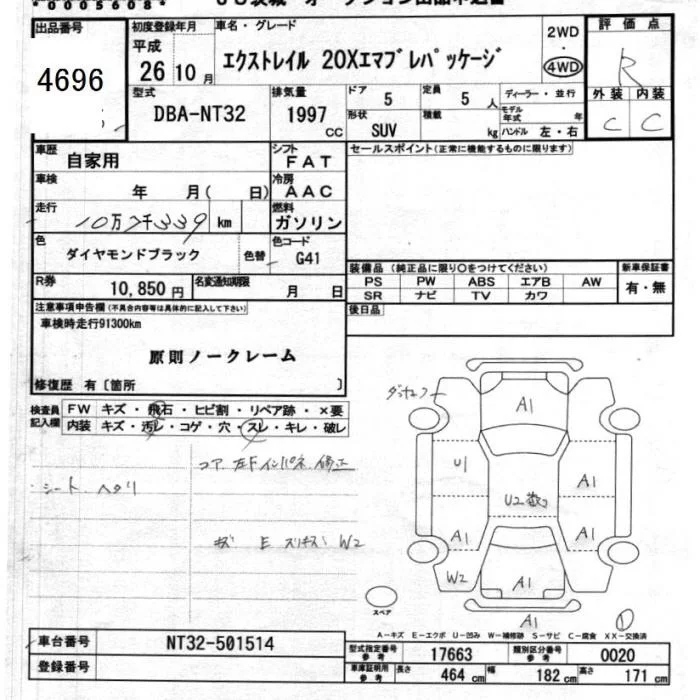 *0005608*
出品番号
4696
初度登録年月
平成
26年10月
車名・グレード
エクストレイル 20Xエマブレパッケージ
2WD
・
4WD
評価点
R
外装 内装
C C
型式
DBA-NT32
排気量
1997
CC
ドア
5
定員
5人
ディーラー・並行
形状
SUV
積載
kg
モデル年式 年
ハンドル 左・右
車歴
自家用
シフト
FAT
セールスポイント(正常に機能するものに限ります)
車検
年 月( 日)
冷房
AAC
走行
km
燃料
ガソリン
色
ダイヤモンドブラック
色替
色コード
G41
R券
10,850円
名変通知期限
月 日
装備品 (純正品に限り○をつけてください)
新車保証書
PS PW ABS エアB AW
有・無
SR ナビ TV カワ
後日品
注意事項申告欄(不具合内容等は具体的に記入して下さい)
車検時走行91300km
原則ノークレーム
修復歴 有〔箇所 〕
検査員記入欄
FW キズ・飛石・ヒビ割・リペア跡・×要
内装 キズ・汚レ・コゲ・穴・スレ・キレ・破レ
コア 左Fインパネ 修正
シート ヘタリ
キズ E スリキズ W2
A1
U1
A1
U2
A1
A1
W2
A1
A1
スペア
①
A-キズ E-エクボ U-凹み W-補修跡 S-サビ C-腐食 XX-交換済
車台番号
NT32-501514
登録番号
型式指定番号
参考
17663
類別区分番号
参考
0020
車庫証明用
参考
長さ 464 cm 幅 182 cm 高さ 171 cm